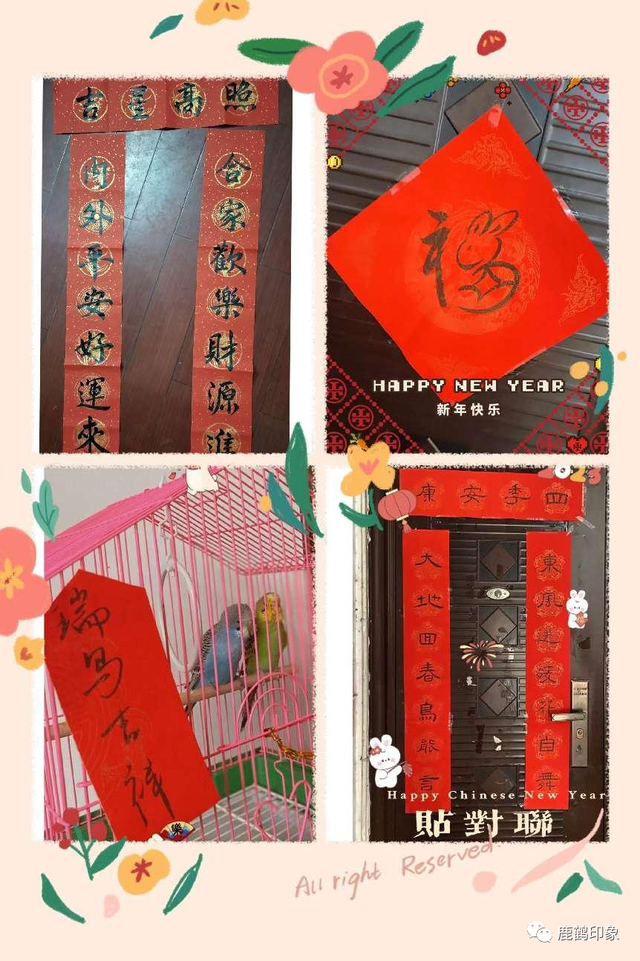 吉星高照
合家歡樂財源進
内外平安好運來
福
HAPPY NEW YEAR
新年快乐
瑞鸟吉祥
四季安康
東風送暖花自舞
大地回春鳥能言
Happy Chinese New Year
貼對聯
All right Reserved
鹿鹤印象